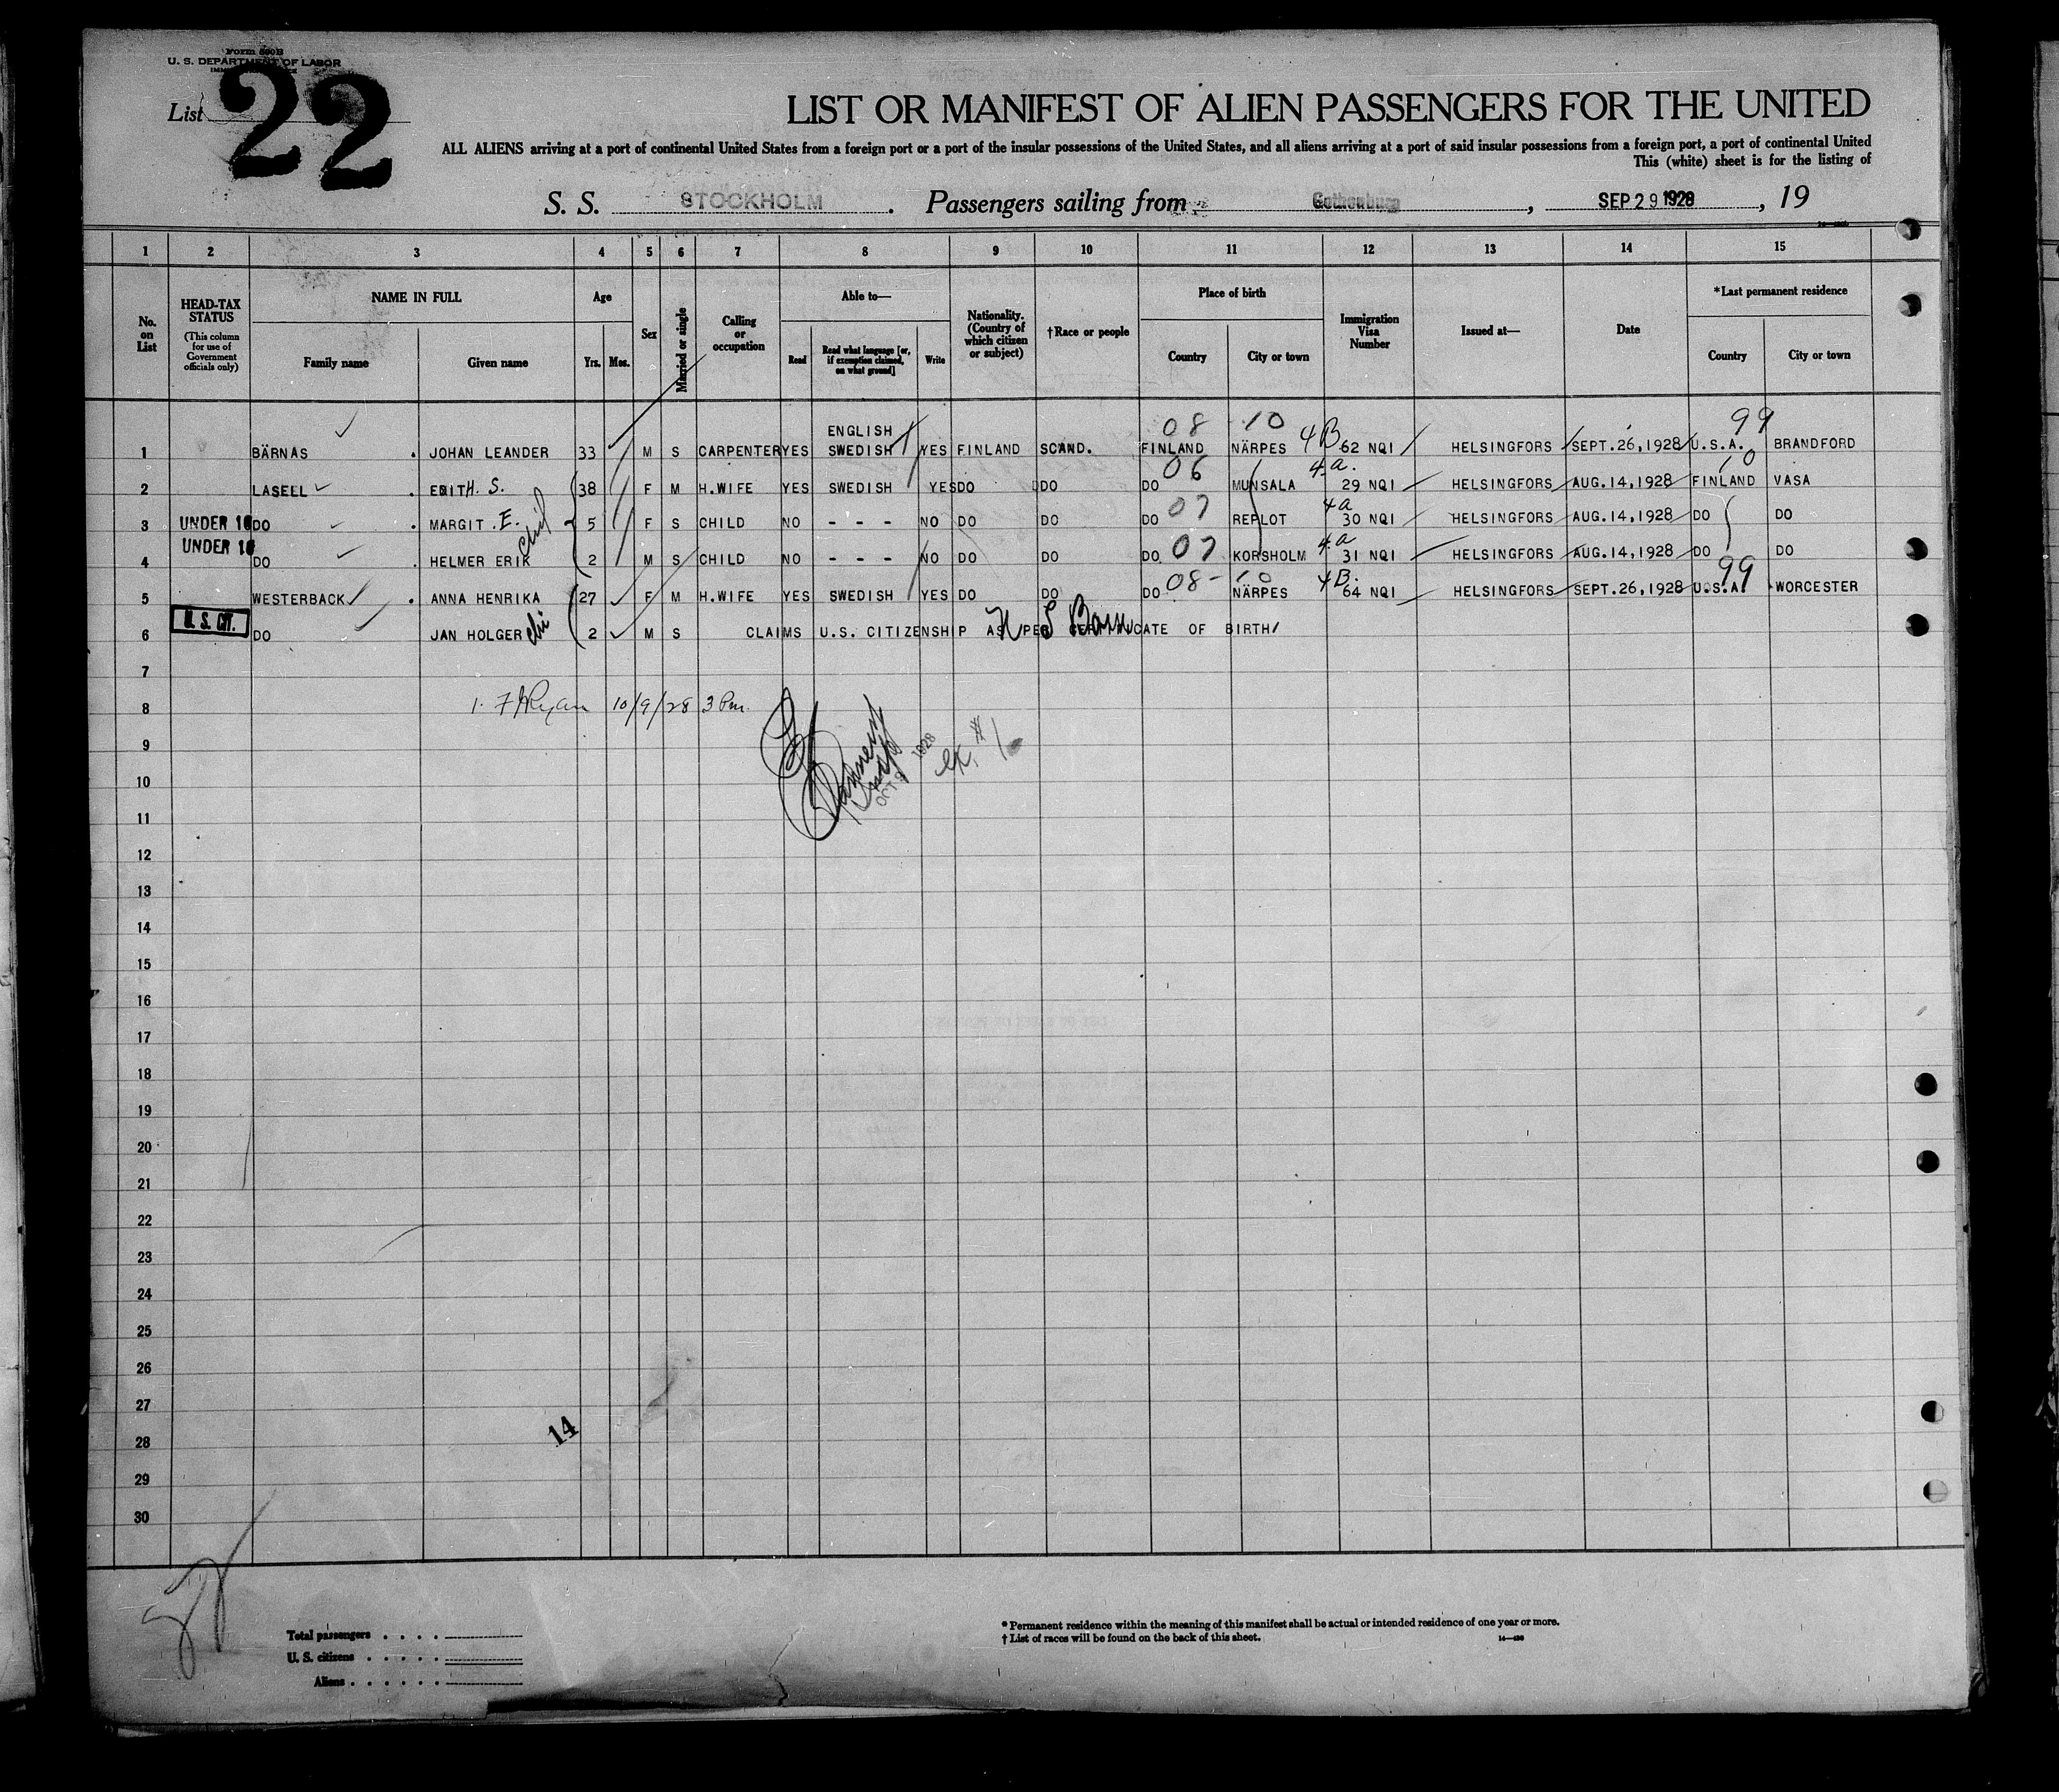 Form 500B
U. S. DEPARTMENT OF LABOR
List 22
LIST OR MANIFEST OF ALIEN PASSENGERS FOR THE UNITED
ALL ALIENS arriving at a port of continental United States from a foreign port or a port of the insular possessions of the United States, and all aliens arriving at a port of said insular possessions from a foreign port, a port of continental United
This (white) sheet is for the listing of
S. S. STOCKHOLM. Passengers sailing from Gothenburg, SEP 29 1928, 19
1 2 3 4 5 6 7 8 9 10 11 12 13 14 15
No. on List
HEAD-TAX STATUS (This column for use of Government officials only)
NAME IN FULL
Family name
Given name
Age
Yrs.
Mos.
Sex
Married or single
Calling or occupation
Able to—
Read
Read what language [or, if exemption claimed, on what ground]
Write
Nationality. (Country of which citizen or subject)
†Race or people
Place of birth
Country
City or town
Immigration Visa Number
Issued at—
Date
*Last permanent residence
Country
City or town
08 10 99
ENGLISH
1 BÄRNAS JOHAN LEANDER 33 M S CARPENTER YES SWEDISH YES FINLAND SCAND. FINLAND NÄRPES 4B 62 NQI HELSINGFORS SEPT.26,1928 U.S.A. BRANDFORD
2 LASELL EDITH. S. 38 F M H.WIFE YES SWEDISH YES DO DO DO 06 MUNSALA 4a. 29 NQI HELSINGFORS AUG.14,1928 FINLAND 10 VASA
3 UNDER 16 DO MARGIT .E. 5 F S CHILD NO - - - NO DO DO DO 07 REPLOT 4a 30 NQI HELSINGFORS AUG.14,1928 DO DO
4 UNDER 16 DO HELMER ERIK 2 M S CHILD NO - - - NO DO DO DO 07 KORSHOLM 4a 31 NQI HELSINGFORS AUG.14,1928 DO DO
5 WESTERBACK ANNA HENRIKA 27 F M H.WIFE YES SWEDISH YES DO DO DO 08- 10 NÄRPES 4B. 64 NQI HELSINGFORS SEPT.26,1928 U.S.A. 99 WORCESTER
6 U. S. CIT. DO JAN HOLGER 2 M S CLAIMS U.S. CITIZENSHIP AS PER CERTIFICATE OF BIRTH
7
8 10/9/28 3 Pm.
9
10
11
12
13
14
15
16
17
18
19
20
21
22
23
24
25
26
27
14
28
29
30
Total passengers
U. S. citizens
Aliens
* Permanent residence within the meaning of this manifest shall be actual or intended residence of one year or more.
† List of races will be found on the back of this sheet.